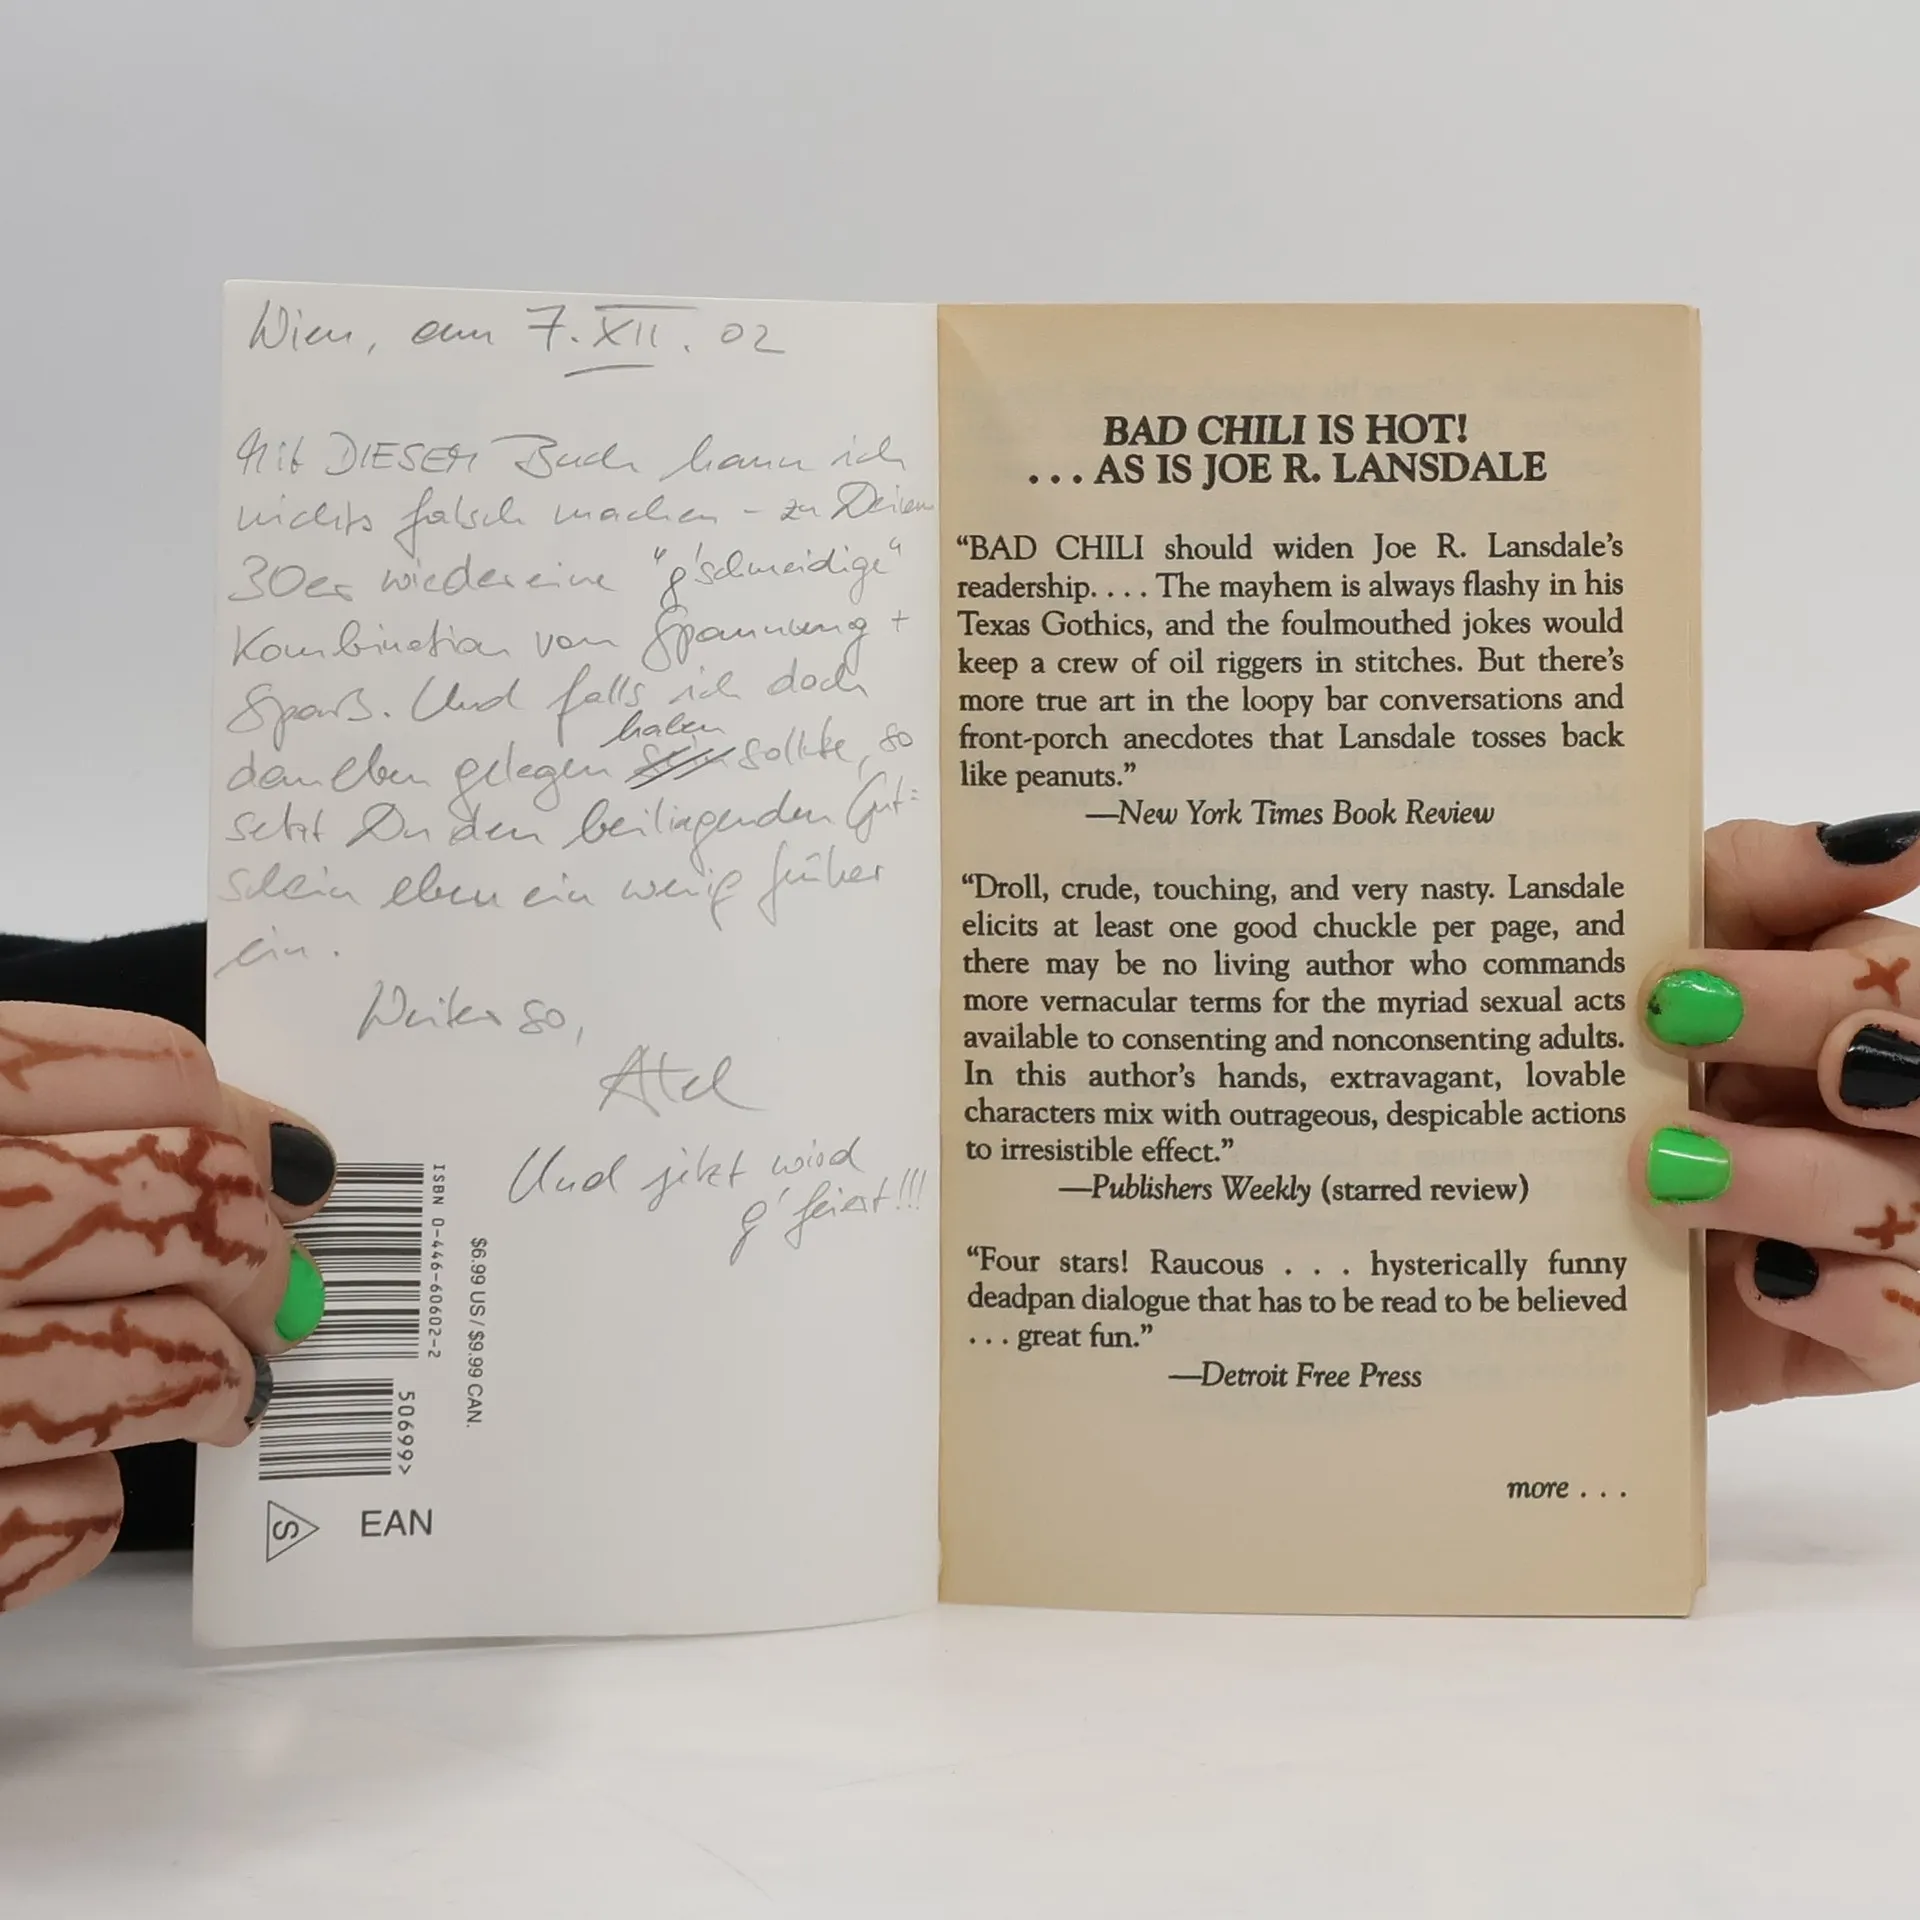 Wien, am 7. XII. 02
Mit DIESEM Buch kann ich
nichts falsch machen – zu Deinem
30er wieder eine "g'schmeidige"
Kombination von Spannung +
Spaß. Und falls ich doch
haben
daneben gelegen sein sollte, so
setzt Du den beiliegenden Gut=
schein eben ein wenig früher
ein.
Weiter so,
Und jetzt wird
g'feiert!!!
ISBN 0-446-60602-2
$6.99 US / $9.99 CAN.
50699>
S
EAN
BAD CHILI IS HOT!
. . . AS IS JOE R. LANSDALE
“BAD CHILI should widen Joe R. Lansdale’s
readership. . . . The mayhem is always flashy in his
Texas Gothics, and the foulmouthed jokes would
keep a crew of oil riggers in stitches. But there’s
more true art in the loopy bar conversations and
front-porch anecdotes that Lansdale tosses back
like peanuts.”
—New York Times Book Review
“Droll, crude, touching, and very nasty. Lansdale
elicits at least one good chuckle per page, and
there may be no living author who commands
more vernacular terms for the myriad sexual acts
available to consenting and nonconsenting adults.
In this author’s hands, extravagant, lovable
characters mix with outrageous, despicable actions
to irresistible effect.”
—Publishers Weekly (starred review)
“Four stars! Raucous . . . hysterically funny
deadpan dialogue that has to be read to be believed
. . . great fun.”
—Detroit Free Press
more . . .